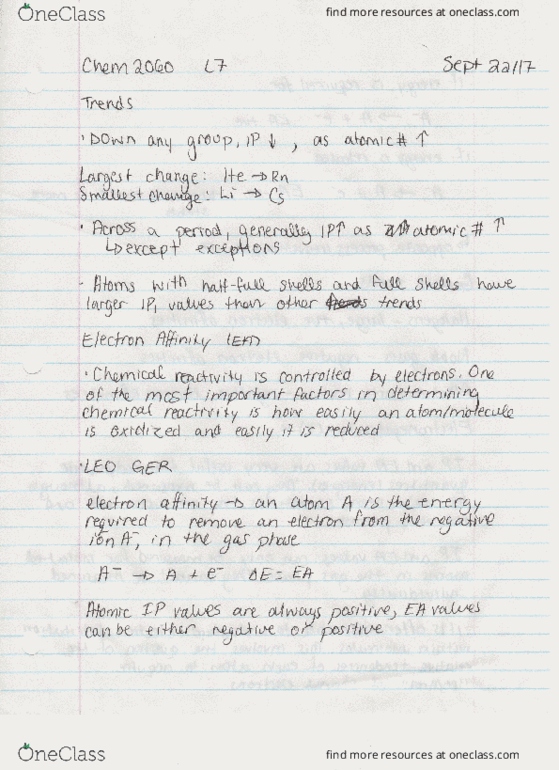 OneClass find more resources at oneclass.com
Chem 2060 L7 Sept 22/17
Trends
· Down any group, IP ↓, as atomic # ↑
Largest change: He → Rn
Smallest change: Li → Cs
· Across a period, generally IP↑ as atomic # ↑
↳ except exceptions
· Atoms with half-full shells and full shells have
larger IP, values than other trends
Electron Affinity (EA)
· Chemical reactivity is controlled by electrons. One
of the most important factors in determining
chemical reactivity is how easily an atom/molecule
is oxidized and easily it is reduced
· LEO GER
electron affinity → an atom A is the energy
required to remove an electron from the negative
ion A⁻, in the gas phase
A⁻ → A + e⁻ ΔE = EA
Atomic IP values are always positive, EA values
can be either negative or positive
OneClass find more resources at oneclass.com